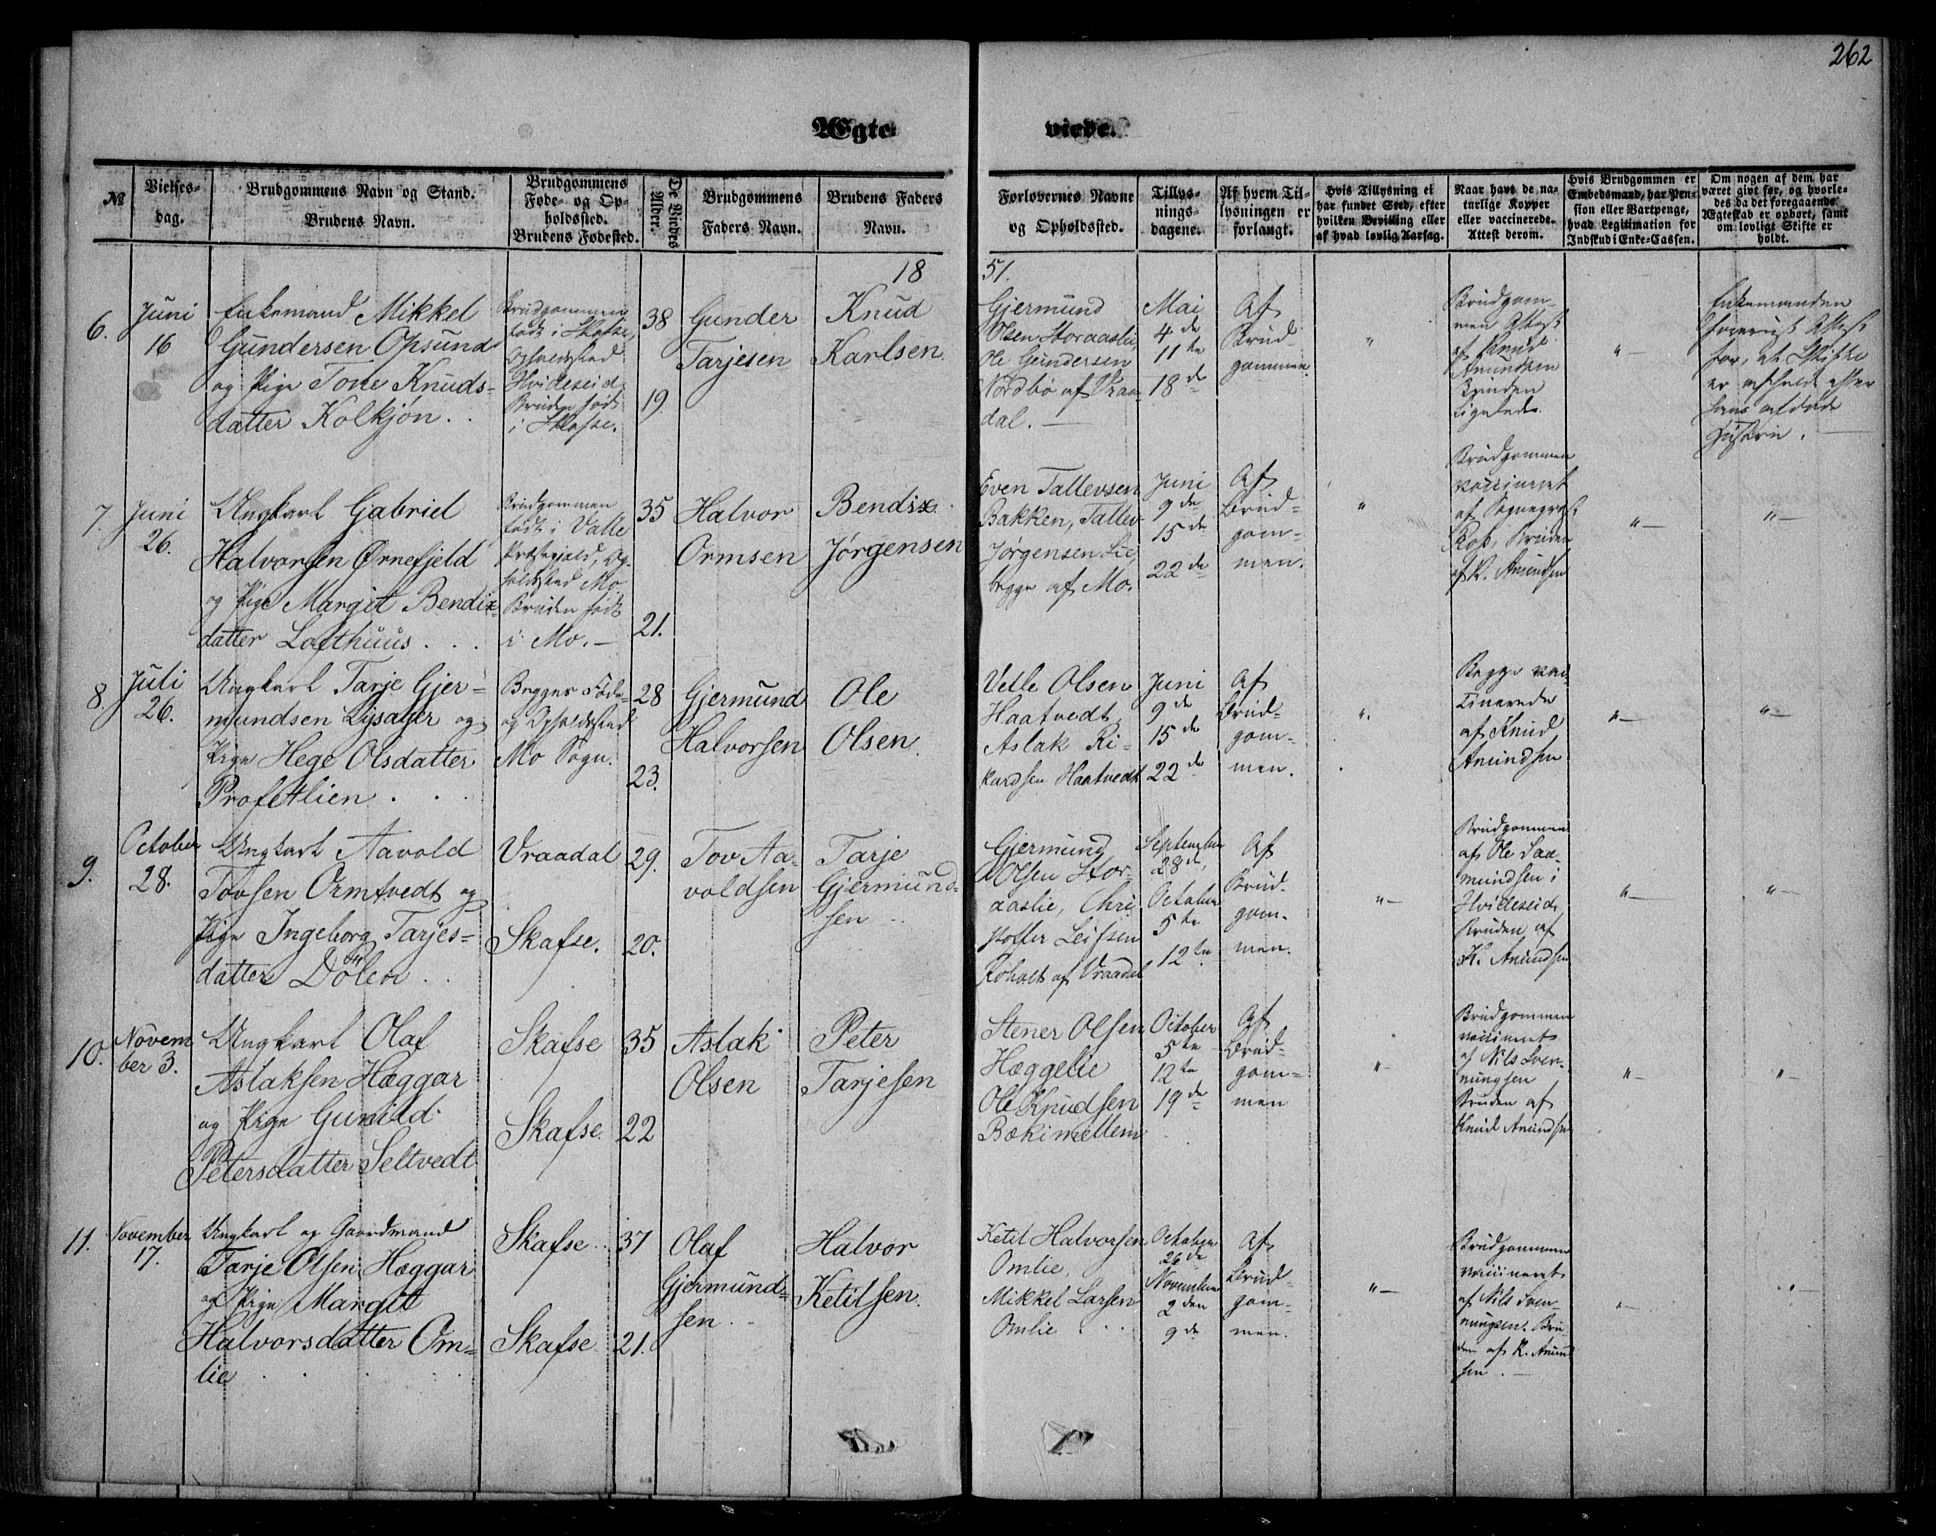 262
Ægte viede.
№
Vielses-
dag.
Brudgommens Navn og Stand.
Brudens Navn.
Brudgommens
Føde- og Op-
holdssted.
Brudens Fødested.
De Viedes
Alder.
Brudgommens
Faders Navn.
Brudens Faders
Navn.
Forlovernes Navne
og Opholdsted.
Tillys-
nings-
dagene.
Af hvem Til-
lysningen er
forlangt.
Hvis Tillysning ei
har fundet Sted, efter
hvilken Bevilling eller
af hvad lovlig Aarsag.
Naar havt de na-
turlige Kopper
eller vaccinerede.
Attest derom.
Hvis Brudgommen er
Embedsmand, har Pen-
sion eller Vartpenge,
hvad Legitimation for
Indskud i Enke-Cassen.
Om nogen af dem har
været givt før, og hvorle-
des da det foregaaende
Ægteskab er ophørt, samt
om lovligt Skifte er
holdt.
1851.
6.
Juni
16
Enkemand Mikkel
Gundersen Opsund
og Pige Tone Knuds-
datter Kolkjøn.
Brudgommen
født i Skafse,
Opholdssted
Hvideseid,
Bruden født
i Skafse.
38
19
Gunder
Tarjesen
Knud
Karlsen
Gjermund
Olsen Storaaslie
Ole Gundersen
Nordbø af Vraa-
dal.
Mai
4de
11te
18de
Af
Brud-
gommen
"
Brudgom-
men Attest
af Knud
Amundsen
Bruden
Ligeledes.
"
Enkemanden
foreviist Attest
for, at Skifte
er afholdt efter
hans afdøde
Hustru.
7.
Juni
26.
Ungkarl Gabriel
Halvorsen Ørnefjeld
og Pige Margit Bendix
datter Lofthuus.
Brudgommen
født i Valle
Præstegjeld, Op-
holdssted Mo.
Bruden født
i Mo.
35
21.
Halvor
Ormsen
Bendix
Jørgensen
Even Tallevsen
Bakken, Tallev
Jørgensen Lie,
begge af Mo.
Juni
9de
15de
22de
Af
Brud-
gom-
men.
"
Brudgommen
vaccineret
af Sognepræst
Bruden
af K. Amundsen
"
"
8.
Juli
26.
Ungkarl Tarje Gjer-
mundsen Lisager og
Pige Hege Olsdatter
Profetlien
Begges Føde-
og Opholdssted
Mo Sogn.
28
23.
Gjermund
Halvorsen
Ole
Olsen
Vetle Olsen
Haatvedt,
Aslak Ri-
kardsen Haatvedt
Juni
9de
15de
22de
Af
Brud-
gom-
men.
"
Begge vac-
cinerede
af Knud
Amundsen
"
"
9.
October
28.
Ungkarl Aavold
Tovsen Ormtvedt og
Pige Ingeborg Tarjes-
datter Dølen
Vraadal
Skafse.
29.
20.
Tov Aa-
voldsen
Tarje
Gjermund-
sen
Gjermund
Olsen Stor-
aaslie, Chri
stoffer Leifsen
Roholt af Vraadal
September
28de,
October
5te
12te
Af
Brud-
gom-
men.
"
Brudgommen
af Ole Saa-
mundsen i
Hvideseid,
Bruden af
K. Amundsen
"
"
10.
Novem
ber 3.
Ungkarl Olaf
Aslaksen Hæggar
og Pige Gunild
Petersdatter Seltvedt
Skafse
Skafse.
35
22
Aslak
Olsen
Peter
Tarjesen
Stener Olsen
Hæggelie
Ole Knudsen
Bækimellem
October
5te
12te
19de
Af
Brud-
gom-
men
"
Brudgommen
vaccineret
af Nils Sven-
nungsen
Bruden af
Knud Amundsen
"
"
11.
November
17.
Ungkarl og Gaardmand
Tarje Olsen Hæggar
og Pige Margit
Halvorsdatter Om-
lie
Skafse
Skafse
37
21.
Olaf
Gjermund-
sen
Halvor
Ketilsen.
Ketil Halvorsen
Omlie,
Mikkel Larsen
Omlie
October
26de
November
2den
9de
Af
Brud-
gom-
men.
"
Brudgommen
vaccineret
af Nils Sven-
nungsen. Bru-
den af K. Amund
sen.
"
"